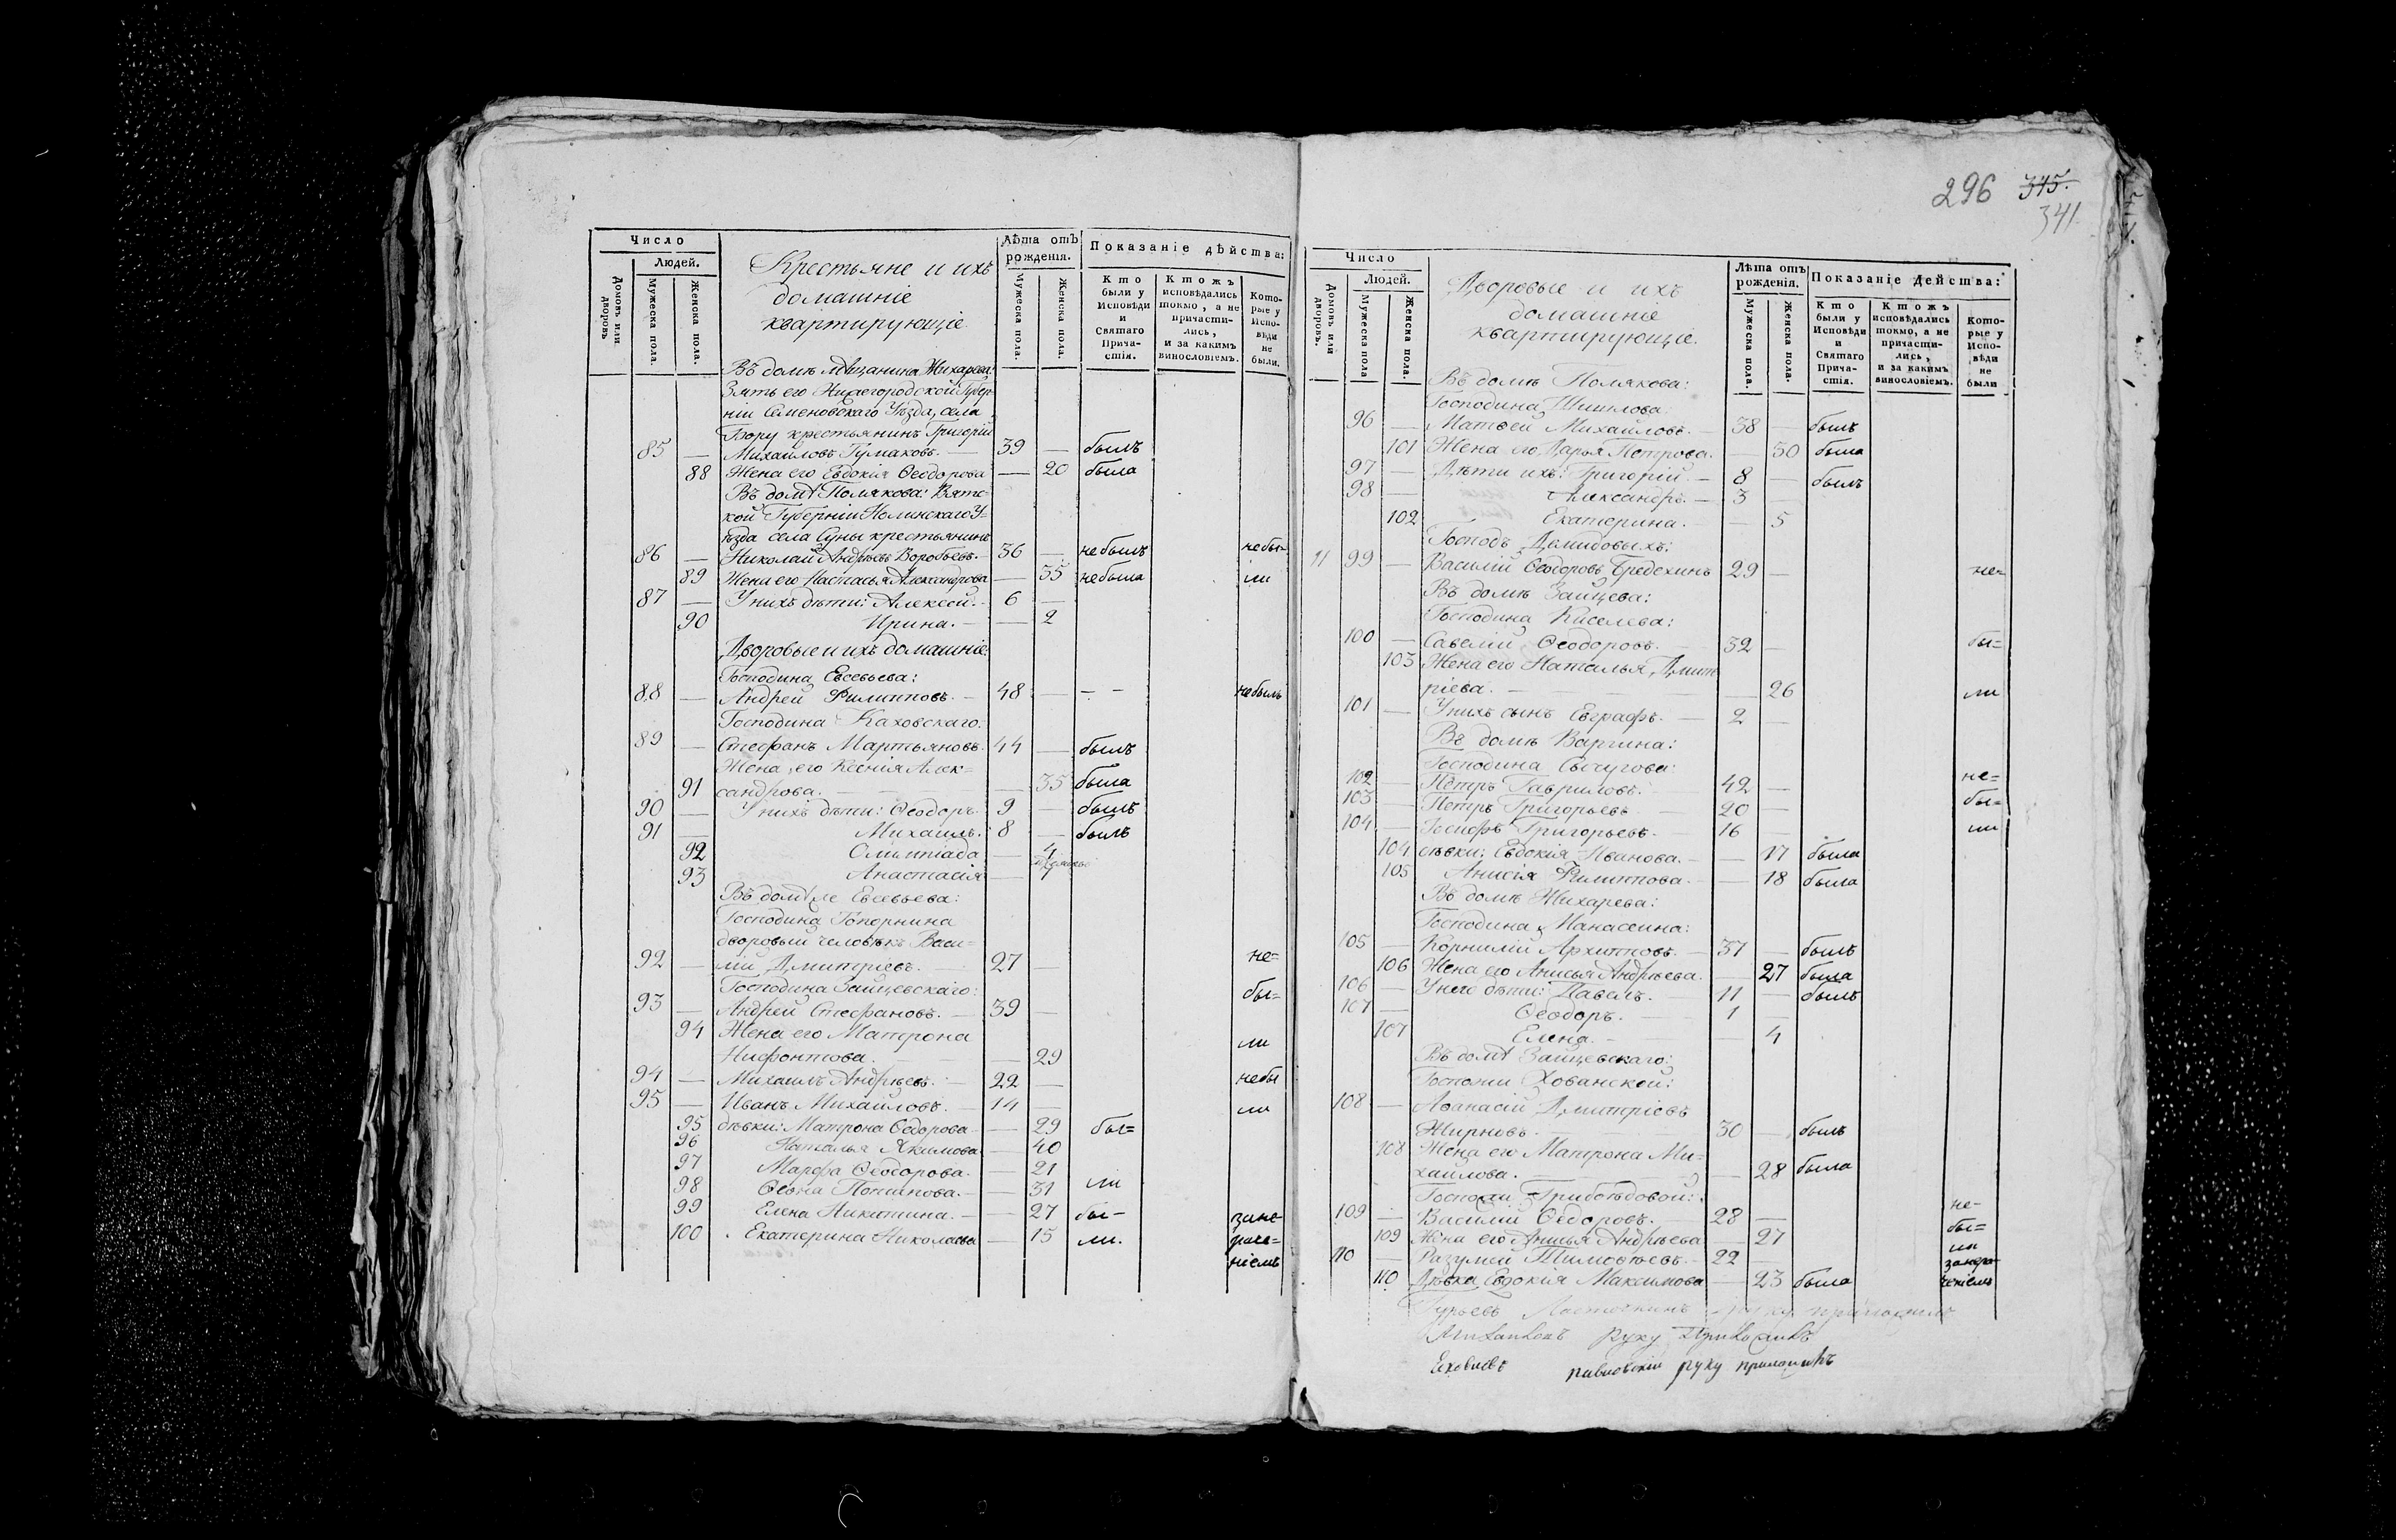 Число
Людей.
Домовъ или дворовъ.
Мужеска пола.
Женска пола.
Крестьяне и ихъ
домашніе
квартирующіе.
Лѣта отъ рожденія.
Мужеска пола.
Женска пола.
Показаніе дѣйства:
Кто были у Исповѣди и Святаго Прича-стія.
Ктожъ исповѣдались токмо, а не причасти-лись, и за какимъ винословіемъ.
Кото-рые у Испо-вѣди не были.
Въ домѣ Мѣщанина Жихарева:
Зять его Нижегородской Губер-
ніи Семеновскаго Уѣзда, села
Бору крестьянинъ Григорій
85 — Михайловъ Гумаковъ. — 39 — былъ
88 Жена его Евдокія Ѳеодорова — 20 была
Въ домѣ Полякова: Вятс-
кой Губерніи Нолинскаго У-
ѣзда села Суны крестьянинъ
86 — Николай Андрѣевъ Воробьевъ. — 36 — небылъ небы-
89 Жена его Настасья Александрова — 35 небыла ли
87 — У нихъ дѣти: Алексей. — 6 —
90 Ирина. — — 2
Дворовые и ихъ домашніе:
Господина Евсевьева:
88 — Андрей Филипповъ. — 48 — — — небылъ
Господина Каховскаго:
89 — Стефанъ Мартьяновъ. 44 — былъ
Жена его Ксенія Алек=
91 сандрова. — — 35 была
90 — У нихъ дѣти: Ѳеодоръ. 9 — былъ
91 — Михаилъ. 8 — былъ
92 Олимпіада — 4
93 Анастасія — 1
Въ домѣ Евсевьева:
Господина Топорнина
дворовый человѣкъ Васи=
92 — лій Дмитріевъ. — 27 — не=
Господина Зайцевскаго:
93 — Андрей Стефановъ. — 39 — бы=
94 Жена его Матрона
Нифонтова. — — 29 ли
94 — Михаилъ Андрѣевъ. — 22 — небы
95 — Иванъ Михайловъ. — 14 — ли
95 дѣвки: Матрона Ѳедорова — 29 бы=
96 Наталья Якимова — 40
97 Марфа Ѳеодорова. — 21
98 Ѳеона Потапова. — — 31 ли
99 Елена Никитина. — — 27 бы— зане-
100 Екатерина Николаева — 15 ли. раче=
ніемъ
296 345.
341.
Число
Людей.
Домовъ или дворовъ.
Мужеска пола
Женска пола.
Дворовые и ихъ
домашніе
квартирующіе.
Лѣта отъ рожденія.
Мужеска пола.
Женска пола.
Показаніе дейсшва:
Кто были у Исповѣди и Святаго Прича-стія.
Ктожъ исповѣдались токмо, а не причасти-лись, и за какимъ винословіемъ.
Кото-рые у Испо-вѣди не были
Въ домѣ Полякова:
Господина Шипилова:
96 — Матвей Михайловъ. — 38 — былъ
101 Жена его Дарья Петрова. — 30 была
97 — Дѣти ихъ: Григорій. — 8 — былъ
98 — Александръ. — 3 —
102 Екатерина. — — 5
Господъ Демидовыхъ:
11 99 — Василій Ѳеодоровъ 29 — не=
Въ домѣ Зайцева:
Господина Киселева:
100 — Савелій Ѳеодоровъ. 32 — бы=
103 Жена его Наталья Дмит
ріева. — — 26 ли
101 — У нихъ сынъ Евграфъ. — 2 —
Въ домѣ Варгина:
Господина Сычугова:
102 — Петръ Гавриловъ. 42 — не=
103 — Петръ Григорьевъ. 20 — бы=
104 — Іосифъ Григорьевъ. 16 — ли
104 дѣвки: Евдокія Иванова. — — 17 была
105 Анисія Филиппова. — 18 была
Въ домѣ Жихарева:
Господина Панасеина:
105 — Корнилій Архиповъ. — 37 — былъ
106 Жена его Анисья Андрѣева. — 27 была
106 — У него дѣти: Павелъ. — 11 — былъ
107 — Ѳеодоръ. — 1 —
107 Елена. — — 4
Въ домѣ Зайцевскаго:
Госпожи Хованской:
108 — Аѳанасій Дмитріевъ
Жирновъ. 30 — былъ
108 Жена его Матрона Ми-
хайлова. — — 28 была
Госпожи Грибоѣдовой:
109 — Василій Ѳедоровъ. 28 — не-
109 Жена его Анисья Андрѣева — 27 бы=
110 — Разумей Тимоѳеевъ. — 22 — ли
110 Дѣвка Евдокія Максимова — 23 была занера-
ченіемъ
Гурьевъ Ласточкинъ руку приложилъ
руку приложилъ
руку приложилъ